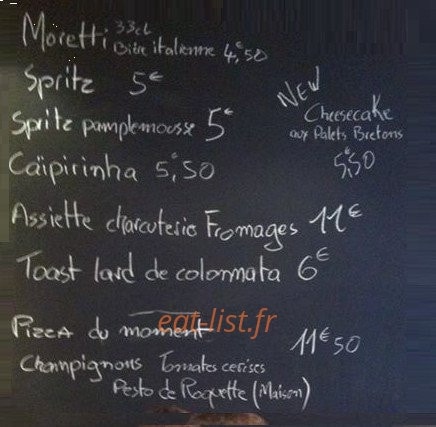 Moretti 33cl Bière italienne 4€,50
Spritz 5€
Spritz pamplemousse 5€
NEW
Cheesecake
aux Palets Bretons
5€,50
Caïpirinha 5€,50
Assiette charcuterie Fromages 11€
Toast lard de colonnata 6€
eat-list.fr
Pizza du moment 11€50
Champignons Tomates cerises
Pesto de Roquette (Maison)